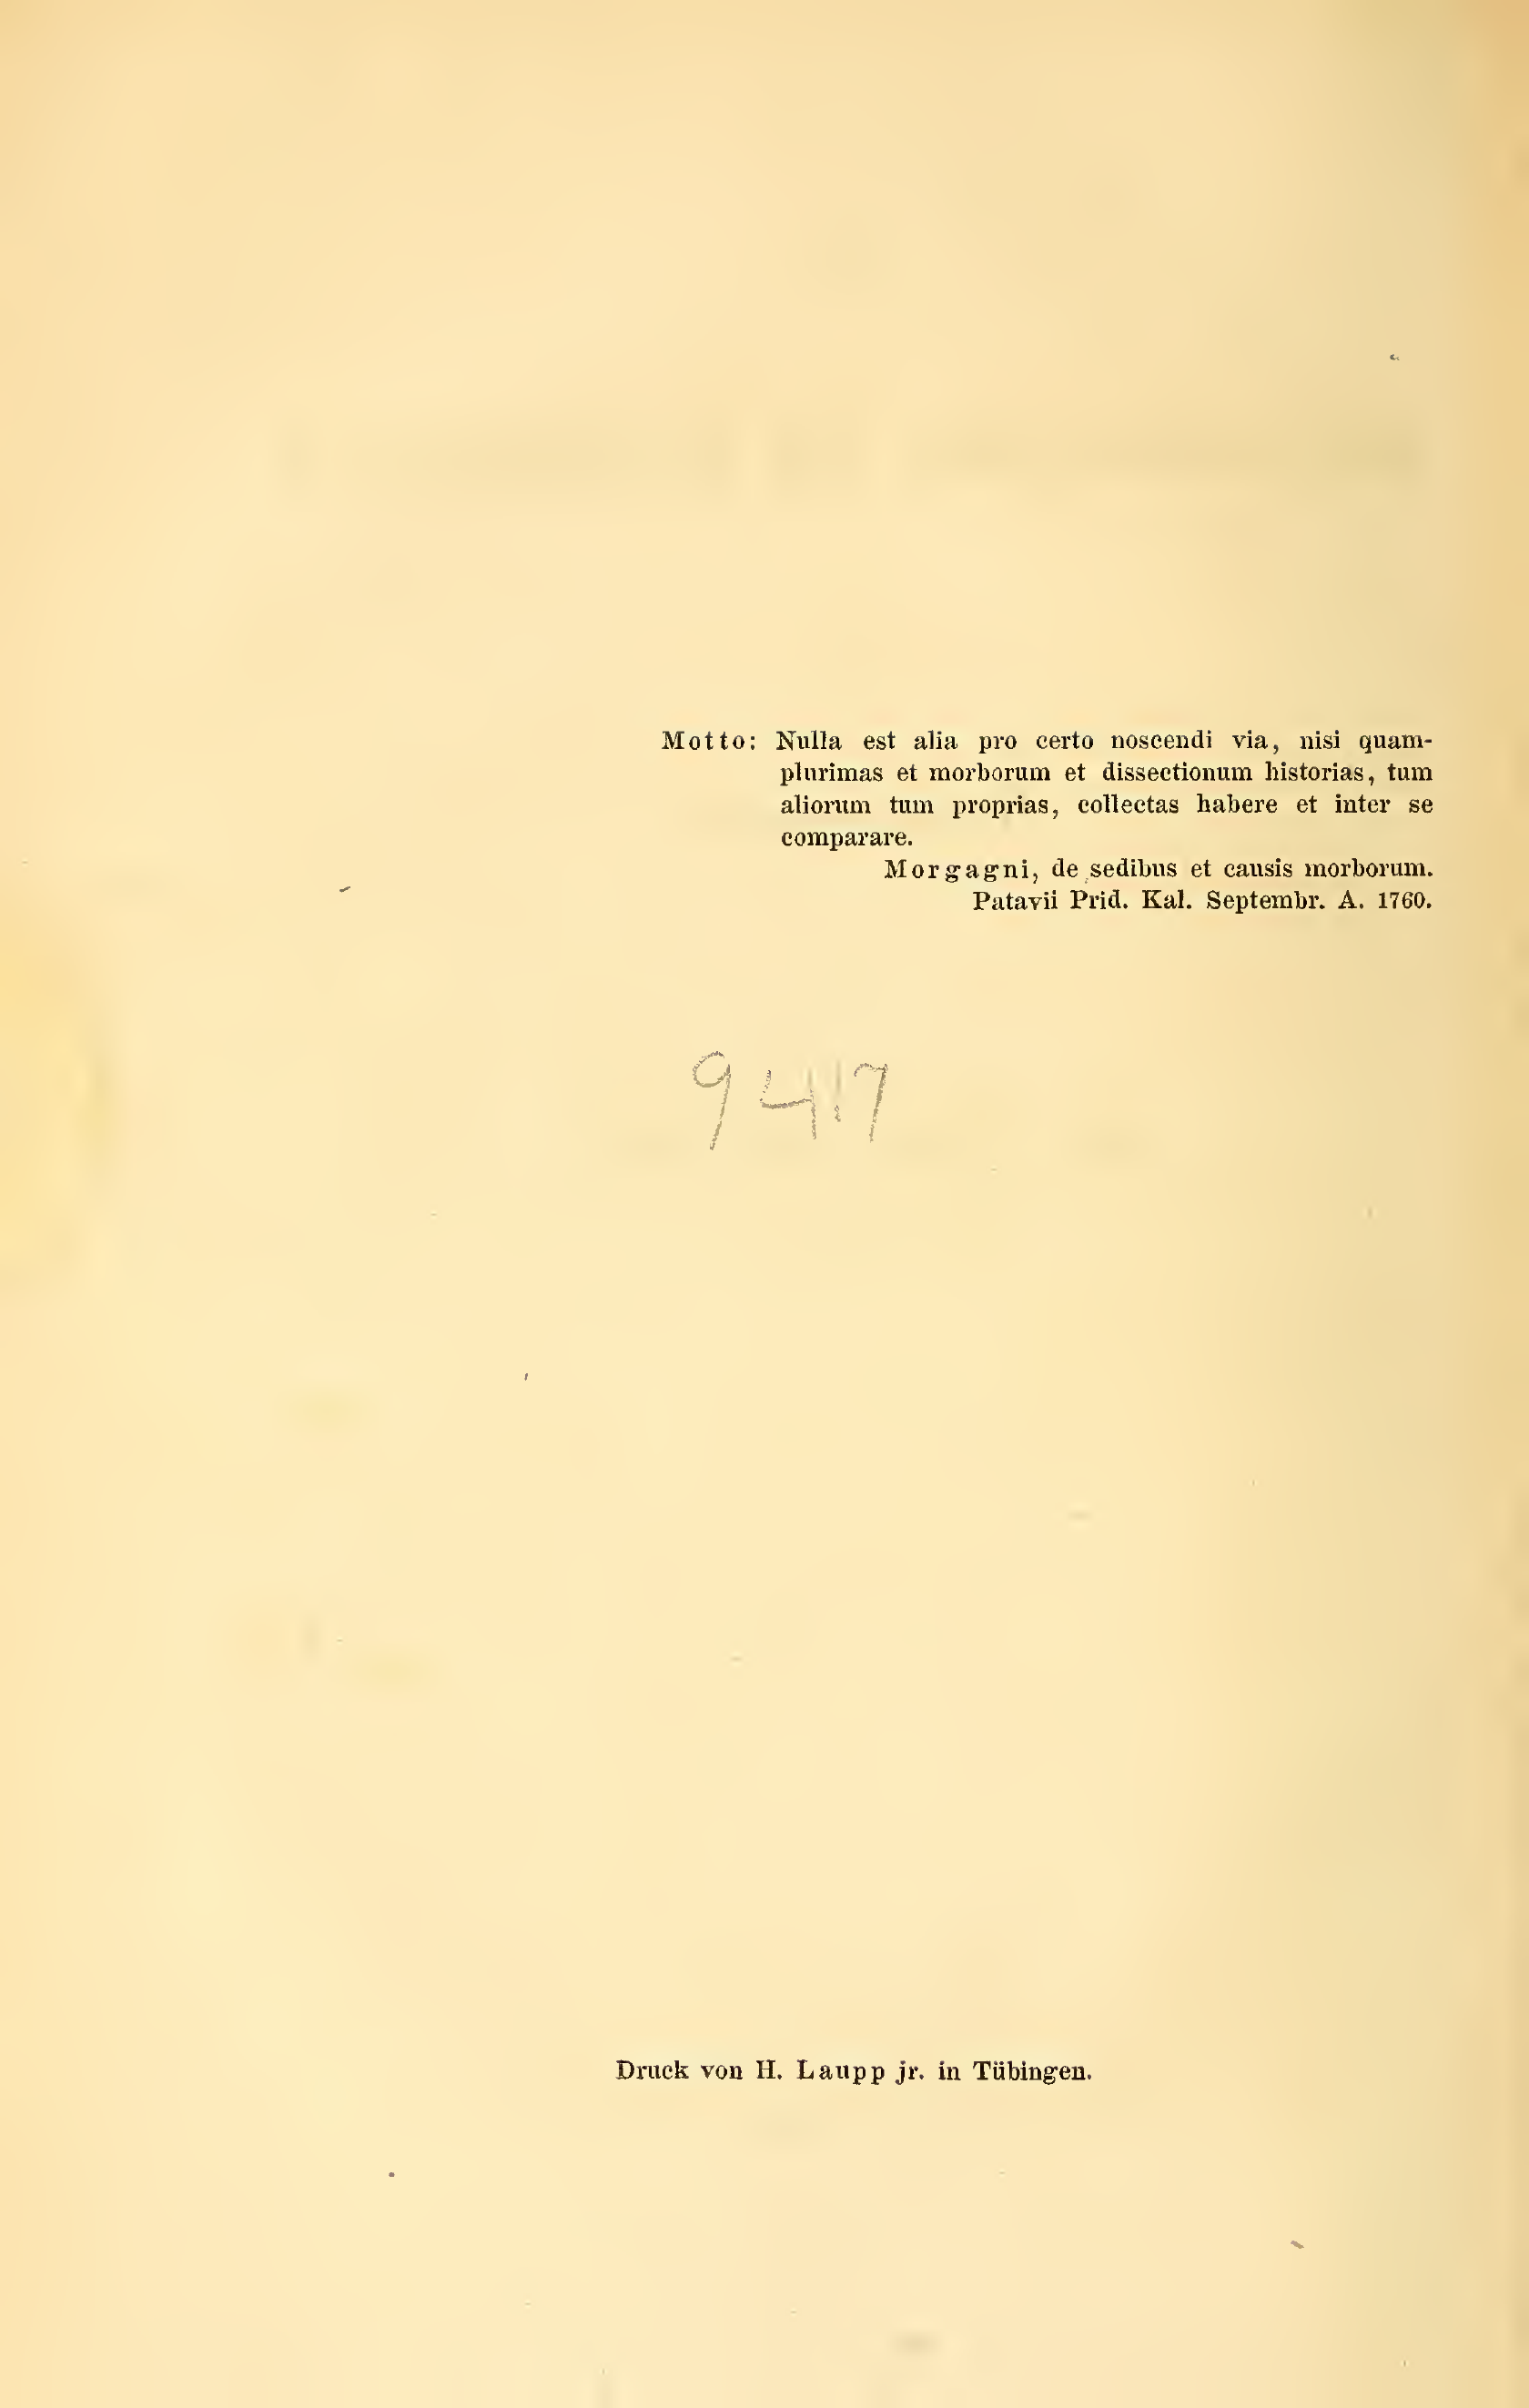 Motto: Nulla est alia pro certo noscendi via, nisi quam-
plurimas et morborum et dissectionum historias, tum
aliorum tum proprias, collectas habere et inter se
comparare.
Morgagni, de sedibus et causis morborum.
Patavii Prid. Kal. Septembr. A. 1760.
94.7
Druck von H. Laupp jr. in Tübingen.